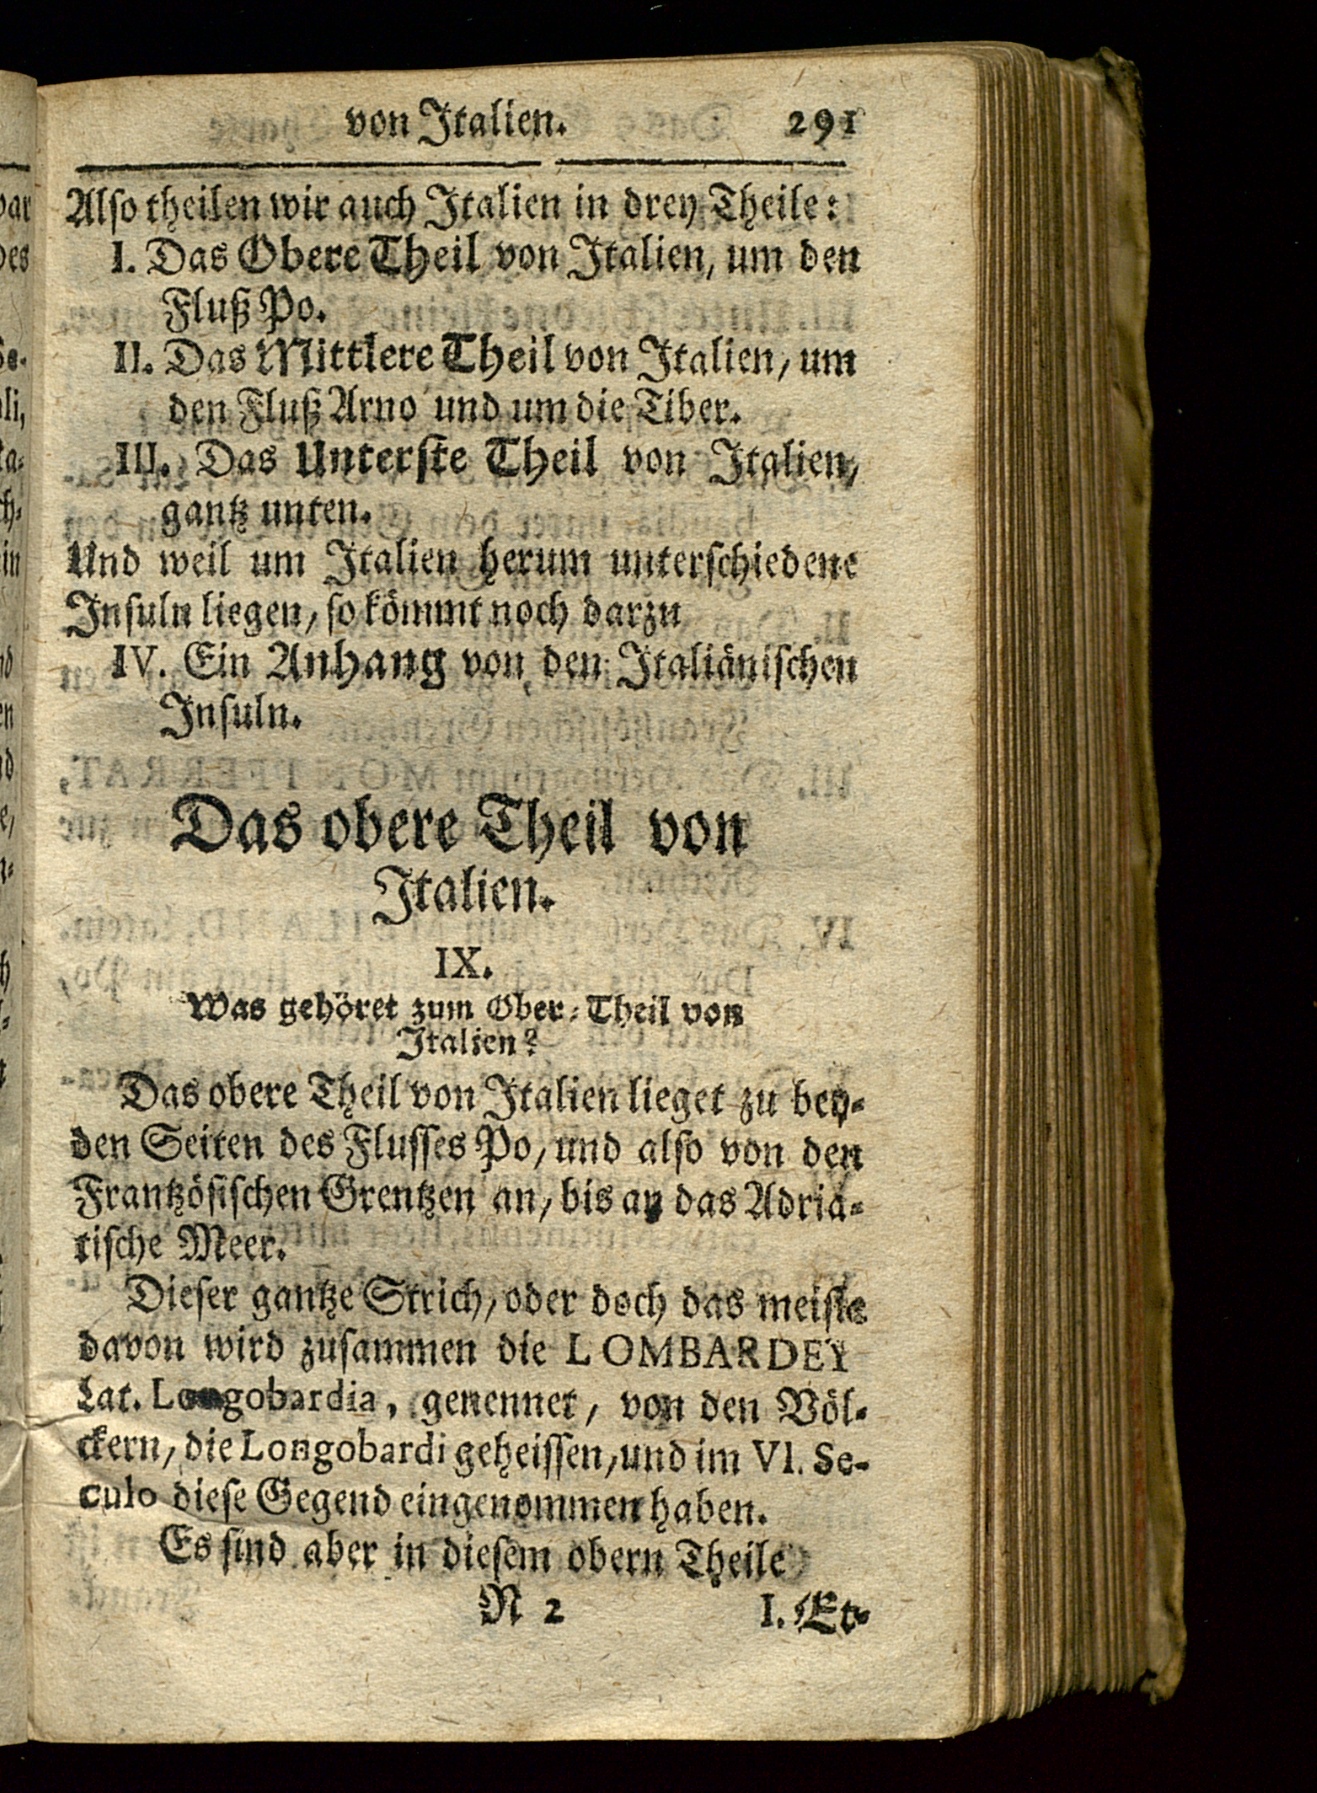 von Italien. 291
Also theilen wir auch Italien in drey Theile:
I. Das Obere Theil von Italien, um den
Fluß Po.
II. Das Mittlere Theil von Italien, um
den Fluß Arno und um die Tiber.
III. Das Unterste Theil von Italien,
gantz unten.
Und weil um Italien herum unterschiedene
Insuln liegen, so kömmt noch darzu
IV. Ein Anhang von den Italiänischen
Insuln.
Das obere Theil von
Italien.
IX.
Was gehöret zum Ober-Theil von
Italien?
Das obere Theil von Italien lieget zu bey-
den Seiten des Flusses Po, und also von den
Frantzösischen Grentzen an, bis an das Adria-
tische Meer.
Dieser gantze Strich, oder doch das meiste
davon wird zusammen die LOMBARDEY
Lat. Longobardia, genennet, von den Völ-
ckern, die Longobardi geheissen, und im VI. Se-
culo diese Gegend eingenommen haben.
Es sind aber in diesem obern Theile
N 2 I. Et-